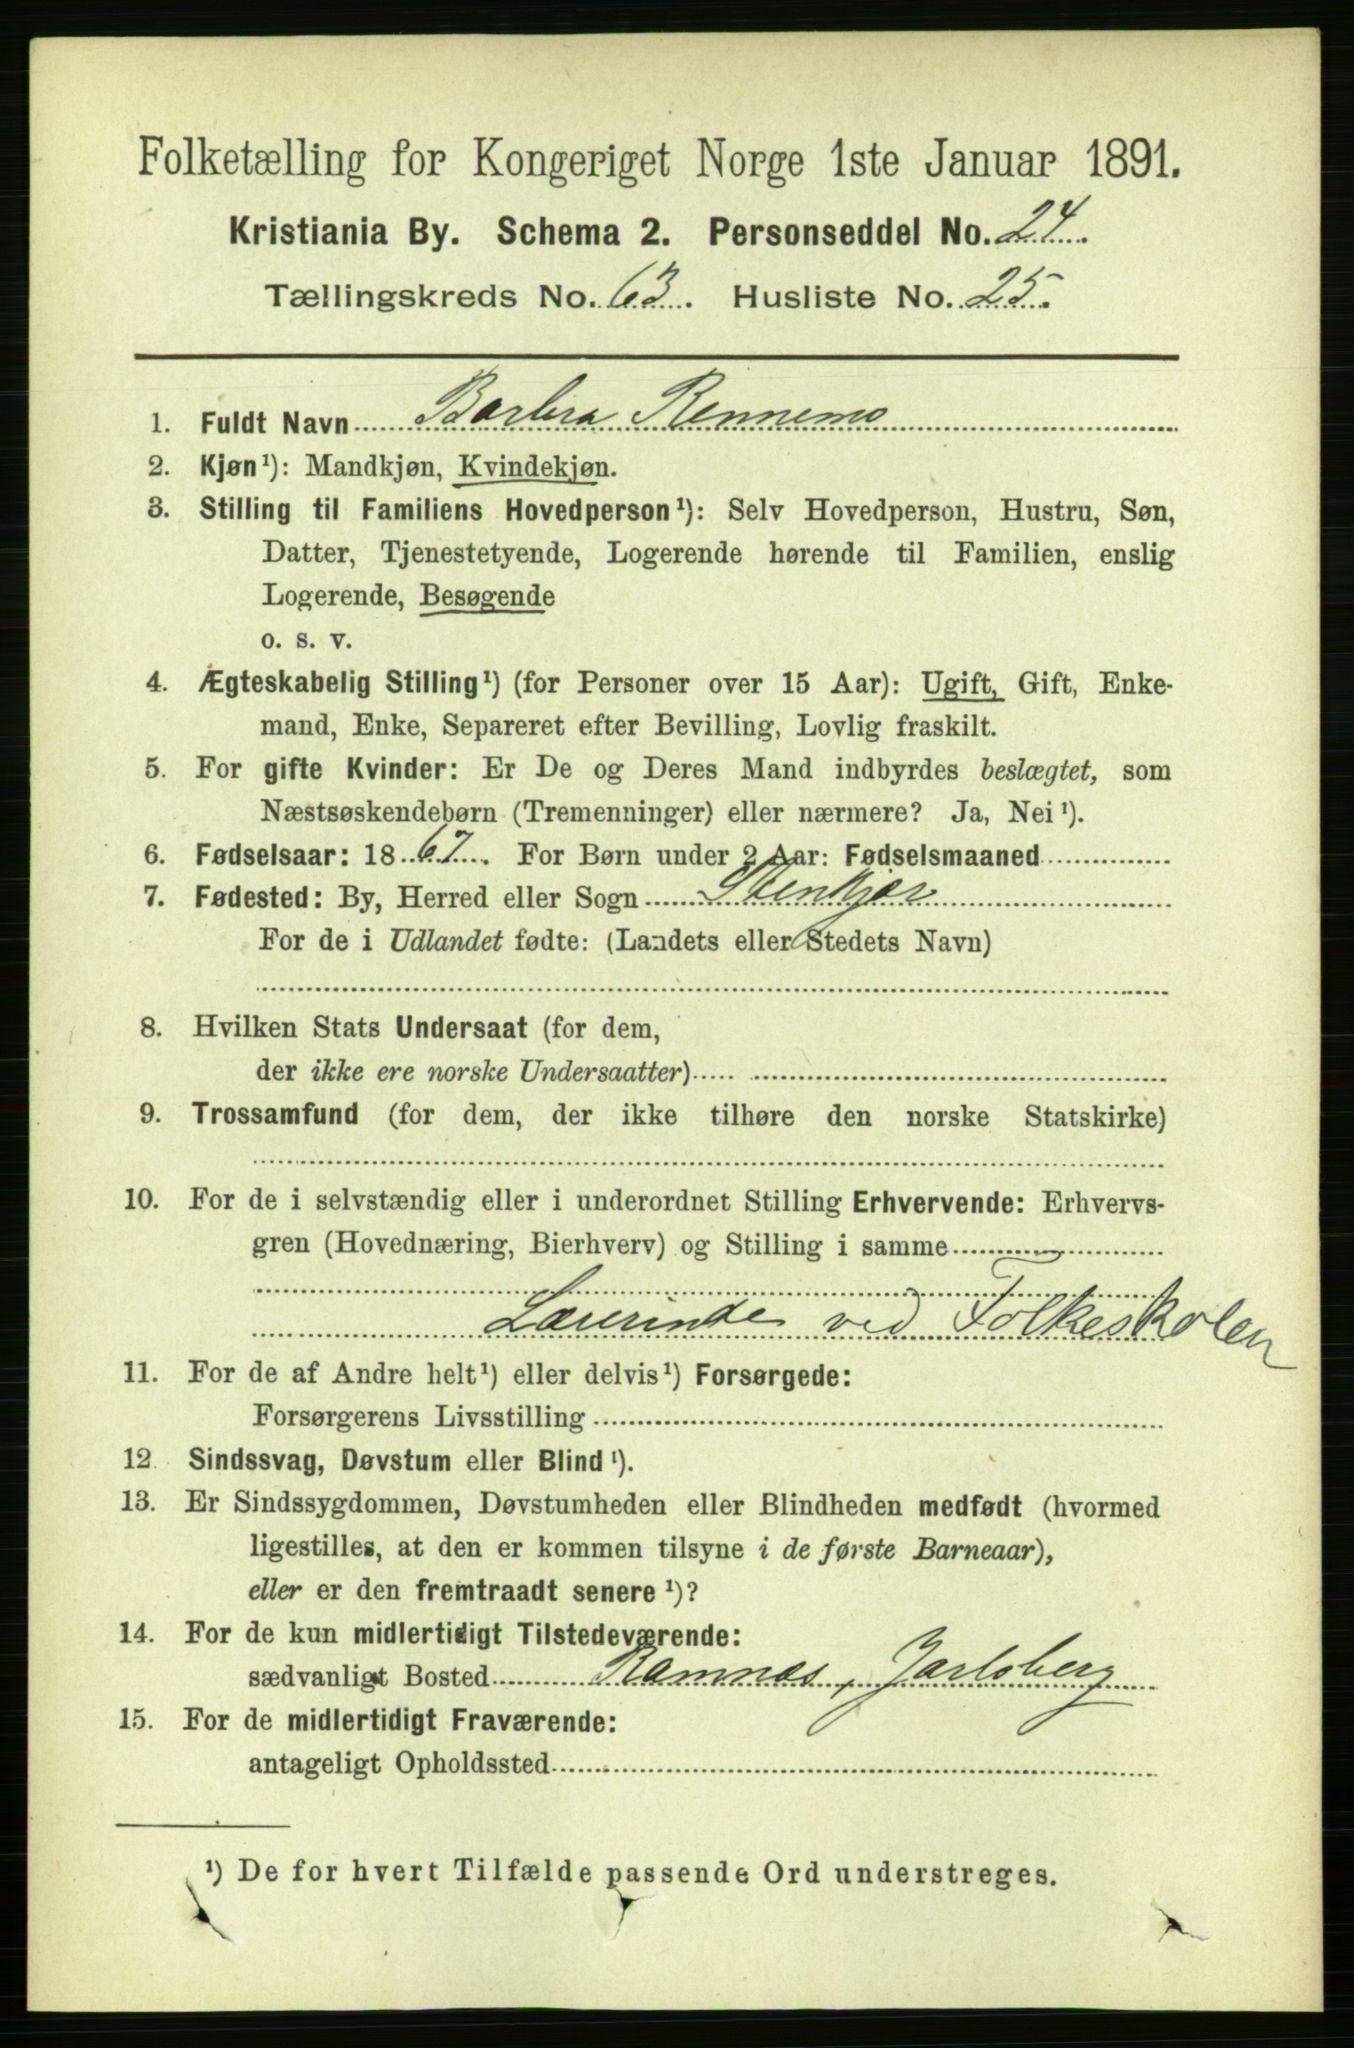 Folketælling for Kongeriget Norge 1ste Januar 1891.
Kristiania By. Schema 2. Personseddel No. 24.
Tællingskreds No. 63. Husliste No. 25.
1. Fuldt Navn Barbra Rennemo
2. Kjøn¹): Mandkjøn, Kvindekjøn.
3. Stilling til Familiens Hovedperson¹): Selv Hovedperson, Hustru, Søn,
Datter, Tjenestetyende, Logerende hørende til Familien, enslig
Logerende, Besøgende
o. s. v.
4. Ægteskabelig Stilling¹) (for Personer over 15 Aar): Ugift, Gift, Enke-
mand, Enke, Separeret efter Bevilling, Lovlig fraskilt.
5. For gifte Kvinder: Er De og Deres Mand indbyrdes beslægtet, som
Næstsøskendebørn (Tremenninger) eller nærmere? Ja, Nei¹).
6. Fødselsaar: 1867. For Børn under 2 Aar: Fødselsmaaned
7. Fødested: By, Herred eller Sogn Stenkjær
For de i Udlandet fødte: (Landets eller Stedets Navn)
8. Hvilken Stats Undersaat (for dem,
der ikke ere norske Undersaatter)
9. Trossamfund (for dem, der ikke tilhøre den norske Statskirke)
10. For de i selvstændig eller i underordnet Stilling Erhvervende: Erhvervs-
gren (Hovednæring, Bierhverv) og Stilling i samme
Lærerinde ved Folkeskolen
11. For de af Andre helt¹) eller delvis¹) Forsørgede:
Forsørgerens Livsstilling
12 Sindssvag, Døvstum eller Blind¹).
13. Er Sindssygdommen, Døvstumheden eller Blindheden medfødt (hvormed
ligestilles, at den er kommen tilsyne i de første Barneaar),
eller er den fremtraadt senere¹)?
14. For de kun midlertidigt Tilstedeværende:
sædvanligt Bosted Ramnæs, Jarlsberg
15. For de midlertidigt Fraværende:
antageligt Opholdssted
¹) De for hvert Tilfælde passende Ord understreges.